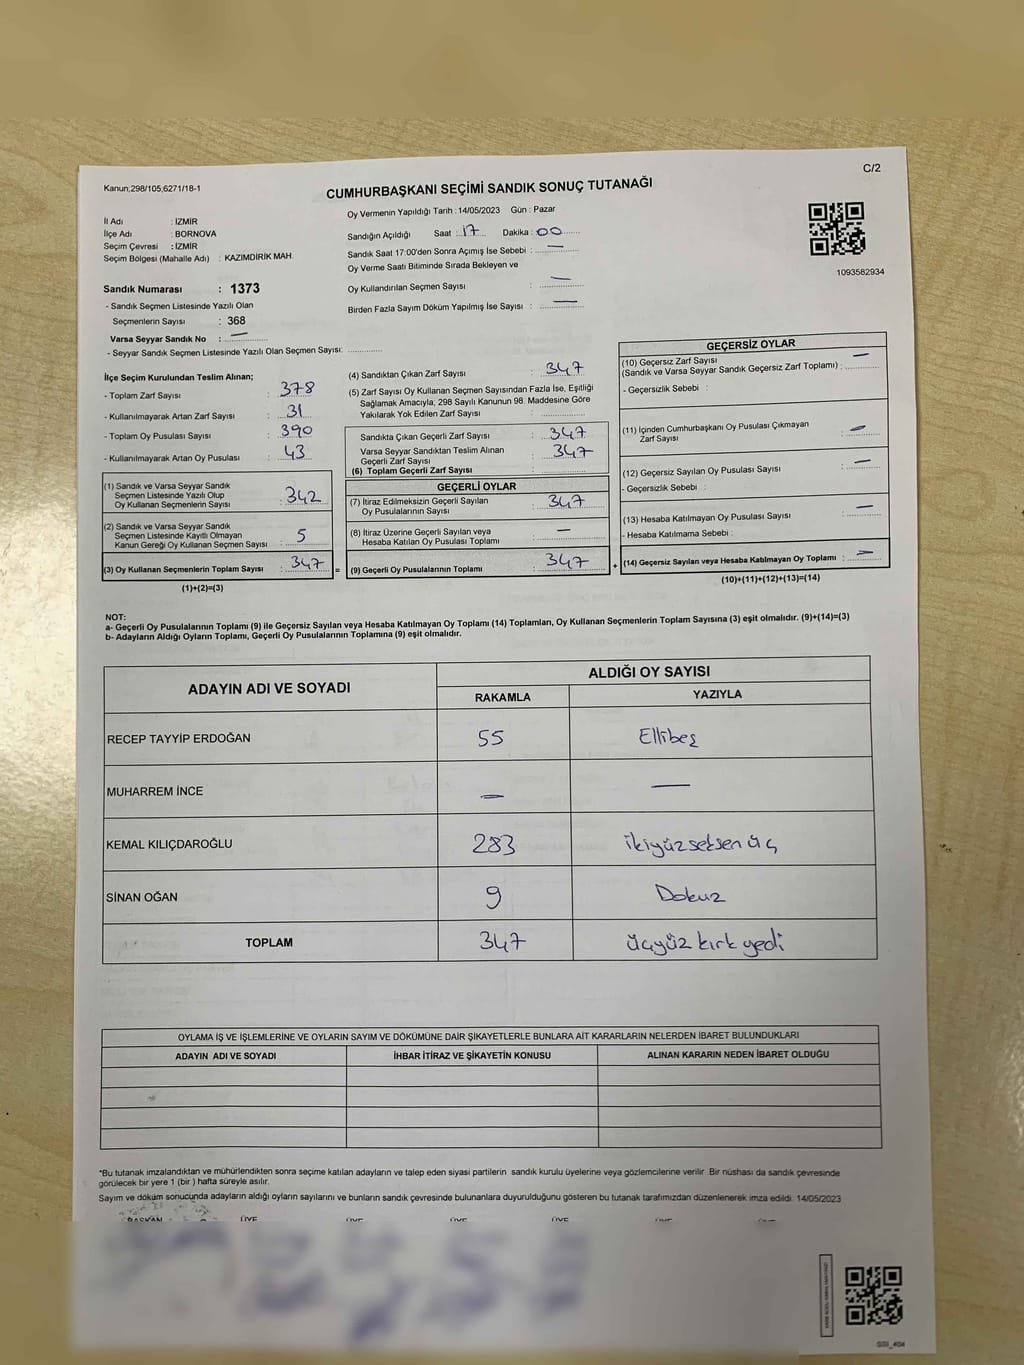 C/2
Kanun;298/105,6271/18-1
CUMHURBAŞKANI SEÇİMİ SANDIK SONUÇ TUTANAĞI
Oy Vermenin Yapıldığı Tarih : 14/05/2023 Gün : Pazar
İl Adı : İZMİR
İlçe Adı : BORNOVA
Seçim Çevresi : İZMİR
Seçim Bölgesi (Mahalle Adı) : KAZIMDİRİK MAH.
Sandığın Açıldığı Saat : 17 Dakika : 00
Sandık Saat 17:00'den Sonra Açımış İse Sebebi : —
Oy Verme Saati Bitiminde Sırada Bekleyen ve
Oy Kullandırılan Seçmen Sayısı : —
Birden Fazla Sayım Döküm Yapılmış İse Sayısı : —
1093582934
Sandık Numarası : 1373
- Sandık Seçmen Listesinde Yazılı Olan
Seçmenlerin Sayısı : 368
Varsa Seyyar Sandık No : —
- Seyyar Sandık Seçmen Listesinde Yazılı Olan Seçmen Sayısı:
İlçe Seçim Kurulundan Teslim Alınan;
- Toplam Zarf Sayısı : 378
- Kullanılmayarak Artan Zarf Sayısı : 31
- Toplam Oy Pusulası Sayısı : 390
- Kullanılmayarak Artan Oy Pusulası : 43
(1) Sandık ve Varsa Seyyar Sandık
Seçmen Listesinde Yazılı Olup
Oy Kullanan Seçmenlerin Sayısı : 342
(2) Sandık ve Varsa Seyyar Sandık
Seçmen Listesinde Kayıtlı Olmayan
Kanun Gereği Oy Kullanan Seçmen Sayısı : 5
(3) Oy Kullanan Seçmenlerin Toplam Sayısı : 347
(1)+(2)=(3)
(4) Sandıktan Çıkan Zarf Sayısı : 347
(5) Zarf Sayısı Oy Kullanan Seçmen Sayısından Fazla İse, Eşitliği
Sağlamak Amacıyla, 298 Sayılı Kanunun 98. Maddesine Göre
Yakılarak Yok Edilen Zarf Sayısı :
Sandıkta Çıkan Geçerli Zarf Sayısı : 347
Varsa Seyyar Sandıktan Teslim Alınan
Geçerli Zarf Sayısı : 347
(6) Toplam Geçerli Zarf Sayısı :
GEÇERLİ OYLAR
(7) İtiraz Edilmeksizin Geçerli Sayılan
Oy Pusulalarının Sayısı : 347
(8) İtiraz Üzerine Geçerli Sayılan veya
Hesaba Katılan Oy Pusulası Toplamı : —
= (9) Geçerli Oy Pusulalarının Toplamı : 347
GEÇERSİZ OYLAR
(10) Geçersiz Zarf Sayısı
(Sandık ve Varsa Seyyar Sandık Geçersiz Zarf Toplamı) : —
- Geçersizlik Sebebi :
(11) İçinden Cumhurbaşkanı Oy Pusulası Çıkmayan
Zarf Sayısı : —
(12) Geçersiz Sayılan Oy Pusulası Sayısı : —
- Geçersizlik Sebebi :
(13) Hesaba Katılmayan Oy Pusulası Sayısı : —
- Hesaba Katılmama Sebebi :
+ (14) Geçersiz Sayılan veya Hesaba Katılmayan Oy Toplamı : —
(10)+(11)+(12)+(13)=(14)
NOT:
a- Geçerli Oy Pusulalarının Toplamı (9) ile Geçersiz Sayılan veya Hesaba Katılmayan Oy Toplamı (14) Toplamları, Oy Kullanan Seçmenlerin Toplam Sayısına (3) eşit olmalıdır. (9)+(14)=(3)
b- Adayların Aldığı Oyların Toplamı, Geçerli Oy Pusulalarının Toplamına (9) eşit olmalıdır.
ADAYIN ADI VE SOYADI ALDIĞI OY SAYISI
RAKAMLA YAZIYLA
RECEP TAYYİP ERDOĞAN 55 Ellibeş
MUHARREM İNCE — —
KEMAL KILIÇDAROĞLU 283 ikiyüzseksen üç
SİNAN OĞAN 9 Dokuz
TOPLAM 347 üçyüz kırk yedi
OYLAMA İŞ VE İŞLEMLERİNE VE OYLARIN SAYIM VE DÖKÜMÜNE DAİR ŞİKAYETLERLE BUNLARA AİT KARARLARIN NELERDEN İBARET BULUNDUKLARI
ADAYIN ADI VE SOYADI İHBAR İTİRAZ VE ŞİKAYETİN KONUSU ALINAN KARARIN NEDEN İBARET OLDUĞU
*Bu tutanak imzalandıktan ve mühürlendikten sonra seçime katılan adayların ve talep eden siyasi partilerin sandık kurulu üyelerine veya gözlemcilerine verilir. Bir nüshası da sandık çevresinde
görülecek bir yere 1 (bir) hafta süreyle asılır.
Sayım ve döküm sonucunda adayların aldığı oyların sayılarını ve bunların sandık çevresinde bulunanlara duyurulduğunu gösteren bu tutanak tarafımızdan düzenlenerek imza edildi. 14/05/2023
BAŞKAN ÜYE ÜYE ÜYE ÜYE